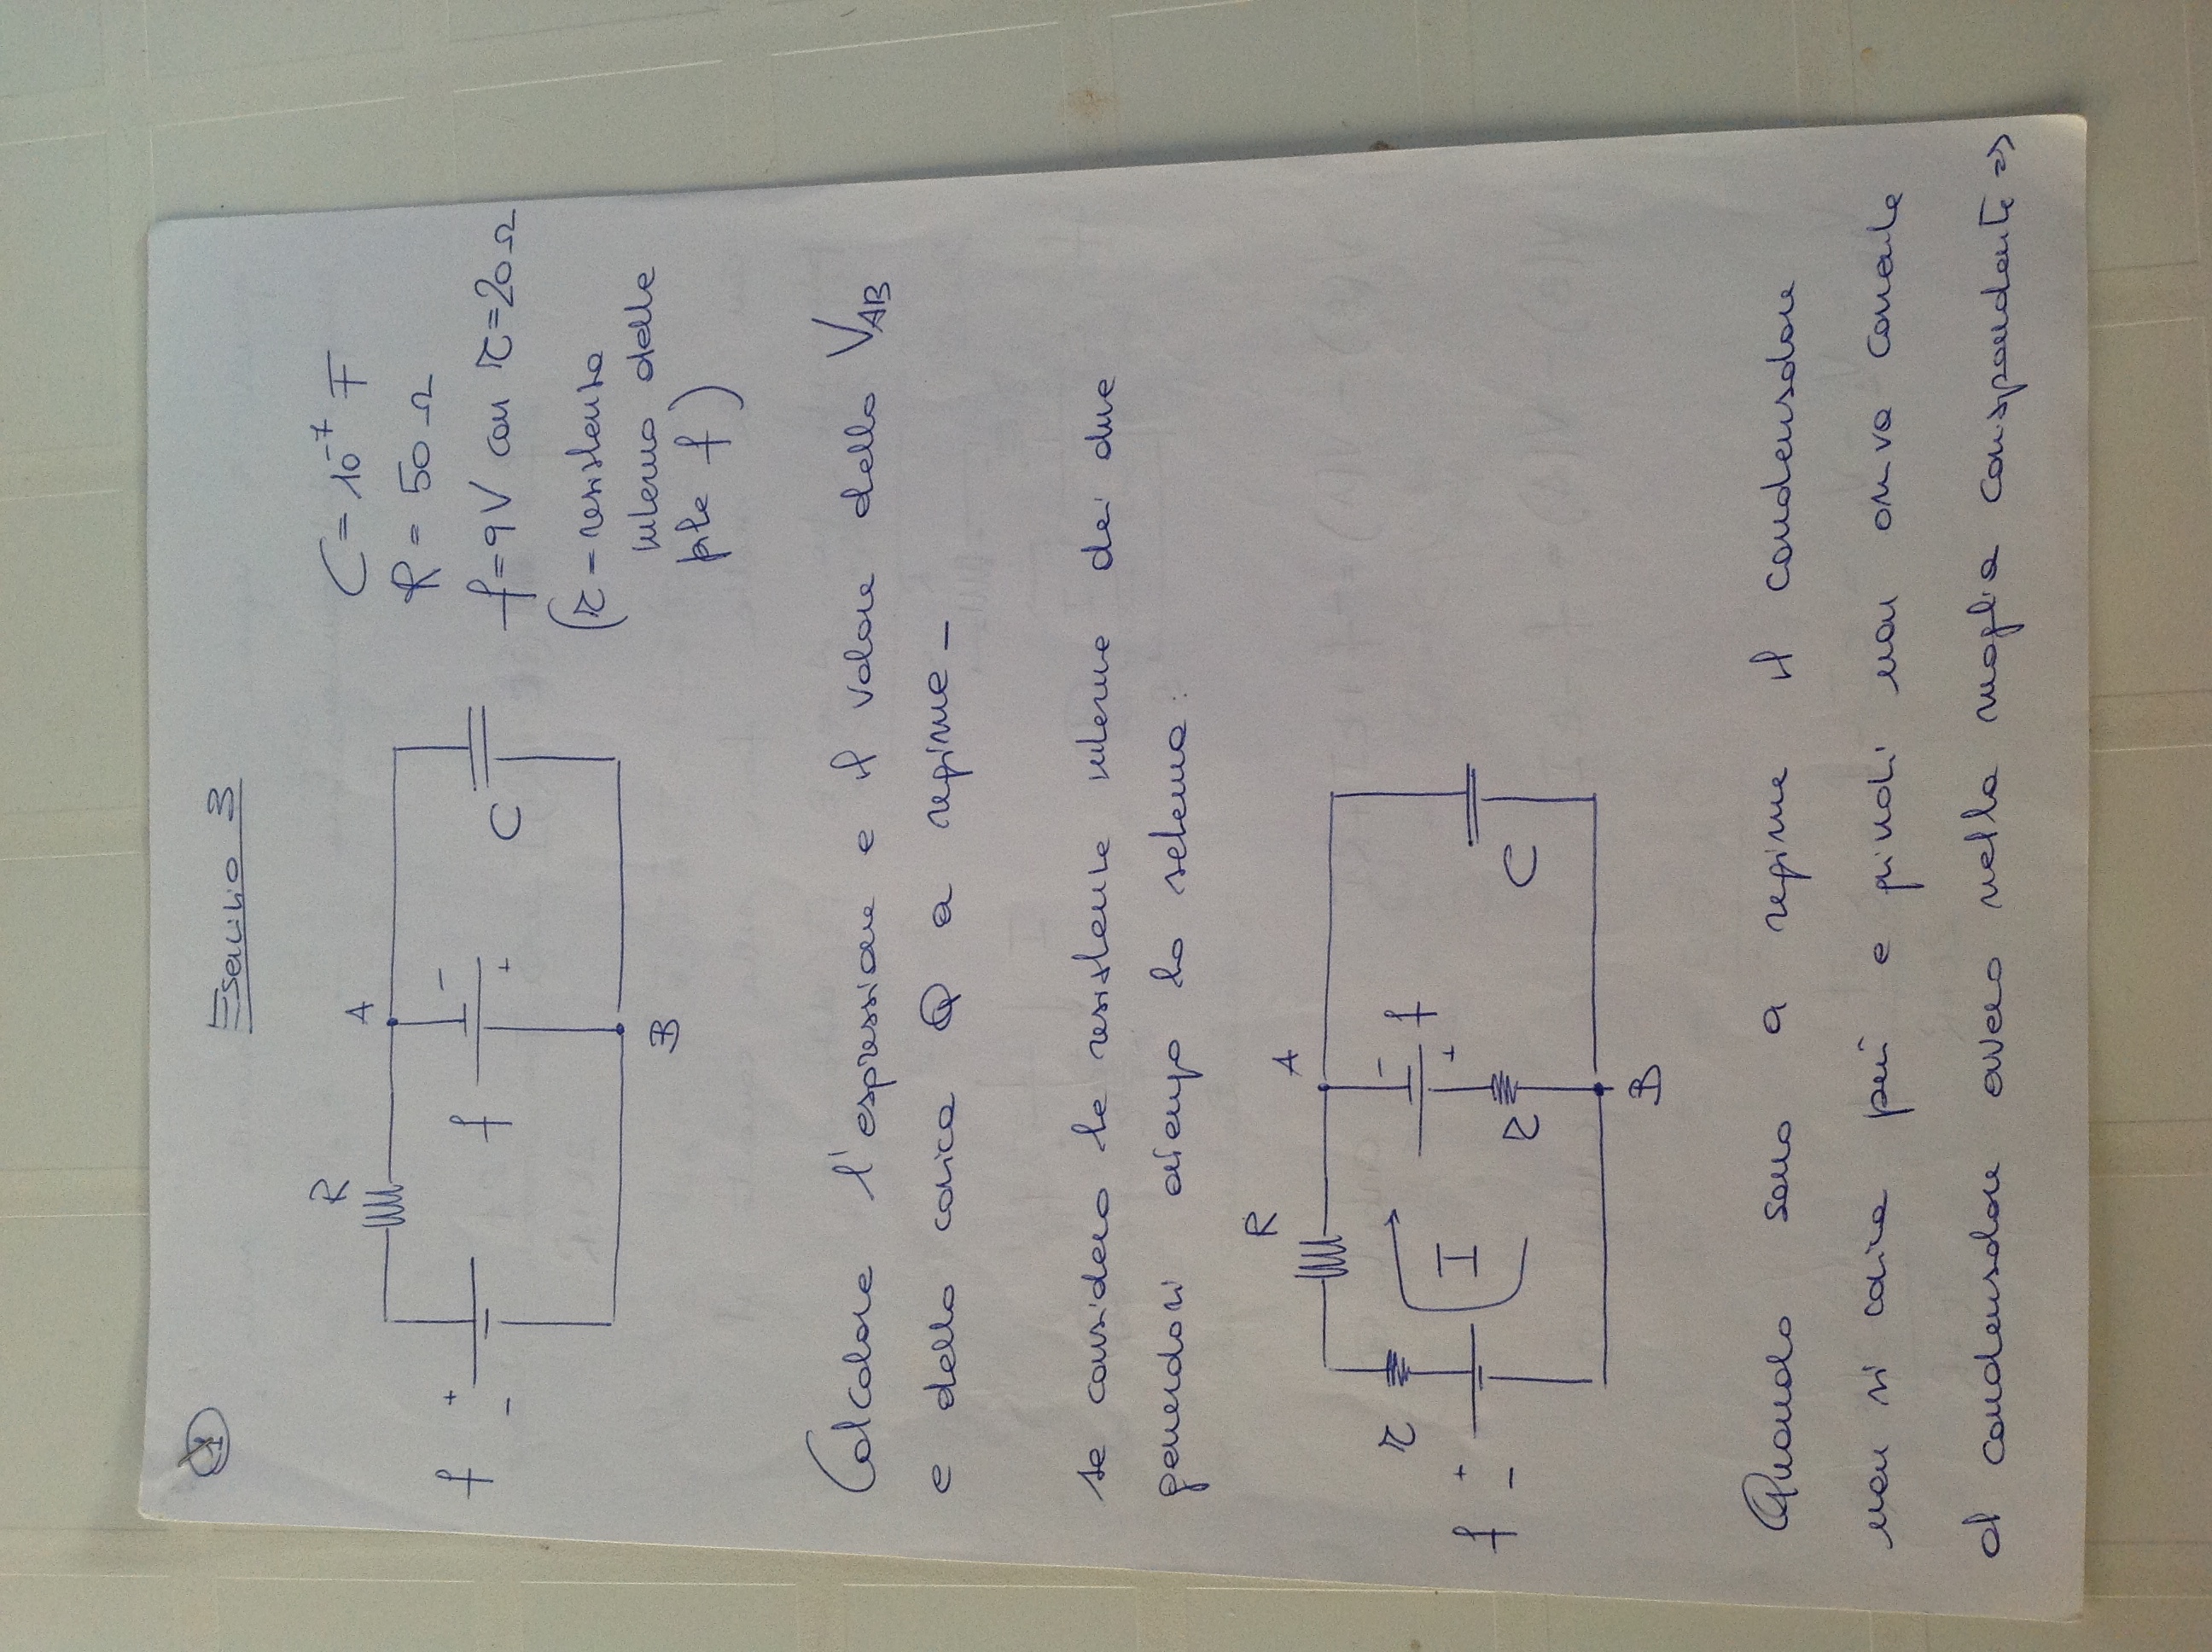 1
Esercizio 3
R
A
C = 10⁻⁷ F
R = 50 Ω
f + -
f - +
C
f = 9V con r = 20 Ω
(r - resistenza
interna delle
pile f)
B
Calcolare l'espressione e il valore della V_AB
e della carica Q a regime -
se considero le resistenze interne dei due
generatori ottengo lo schema:
R
A
r
- f +
f + -
I
r
C
B
Quando sono a regime il condensatore
non si carica più e quindi non arriva corrente
al condensatore ovvero nella maglia corrispondente =>